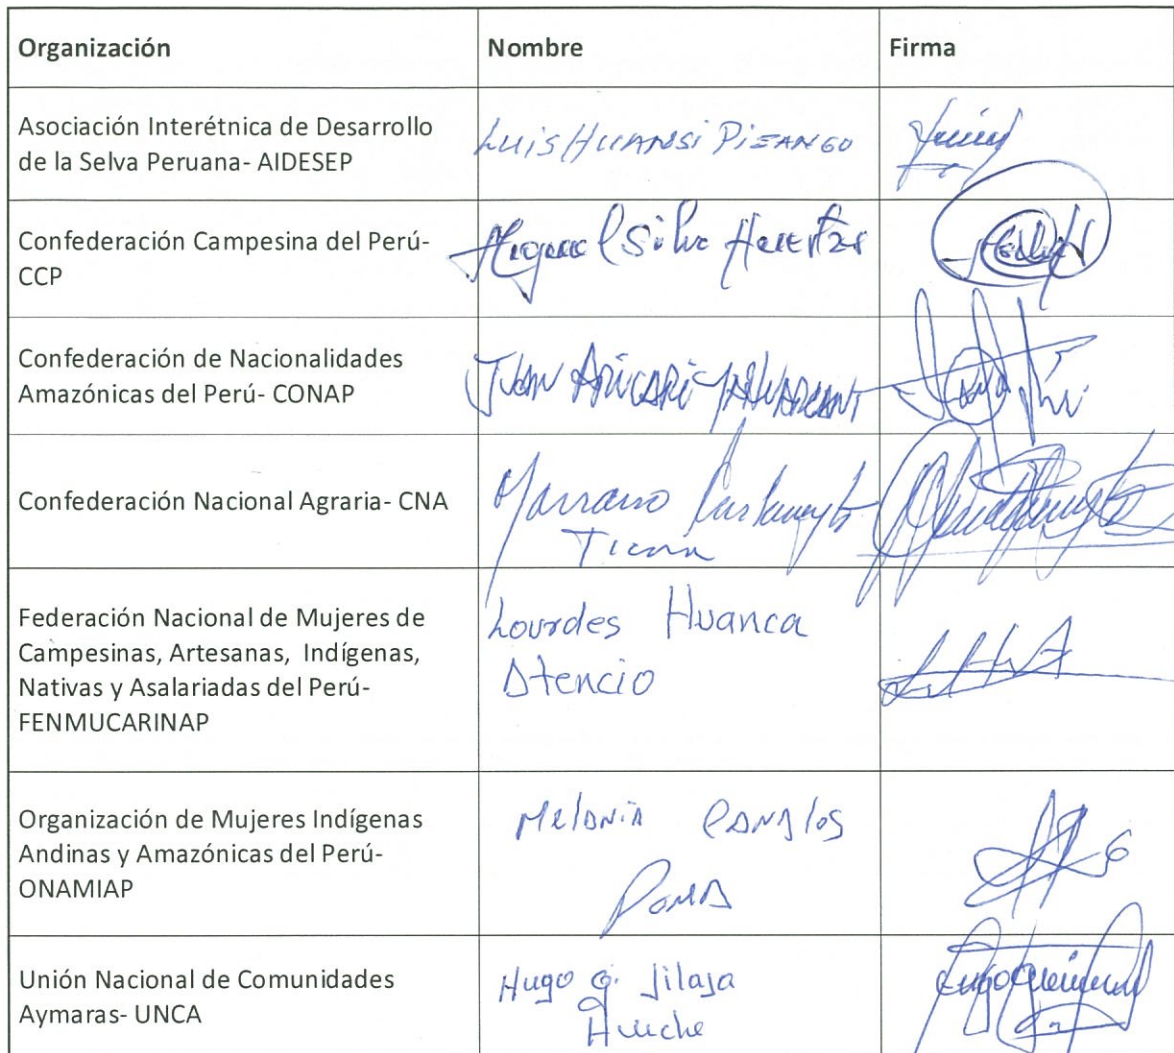 Organización Nombre Firma
Asociación Interétnica de Desarrollo
de la Selva Peruana- AIDESEP
Luis Huansi Pizango
Confederación Campesina del Perú-
CCP
Miguel Silva Huertas
Confederación de Nacionalidades
Amazónicas del Perú- CONAP
Juan
Confederación Nacional Agraria- CNA
Federación Nacional de Mujeres de
Campesinas, Artesanas, Indígenas,
Nativas y Asalariadas del Perú-
FENMUCARINAP
Lourdes Huanca
Atencio
Organización de Mujeres Indígenas
Andinas y Amazónicas del Perú-
ONAMIAP
Melania Canales
Poma
Unión Nacional de Comunidades
Aymaras- UNCA
Hugo G. Jilaja